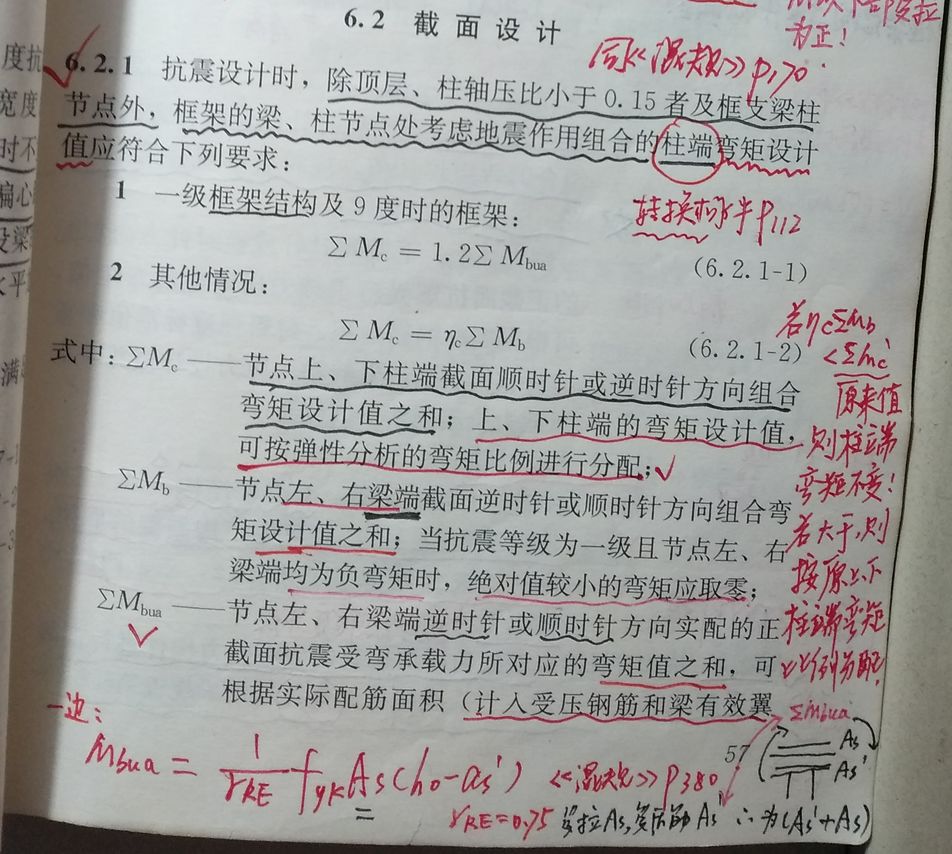 6.2 截面设计
为正!
同《混规》P170.
6.2.1 抗震设计时,除顶层、柱轴压比小于0.15者及框支梁柱
节点外,框架的梁、柱节点处考虑地震作用组合的柱端弯矩设计
值应符合下列要求:
1 一级框架结构及9度时的框架:
P112
∑Mc = 1.2∑Mbua (6.2.1-1)
2 其他情况:
∑Mc = ηc∑Mb (6.2.1-2)
若ηc∑Mb
<∑Mc'
原来值
则柱端
弯矩不变!
若大于,则
按原上、下
柱端弯矩
比例分配.
式中:∑Mc——节点上、下柱端截面顺时针或逆时针方向组合
弯矩设计值之和;上、下柱端的弯矩设计值,
可按弹性分析的弯矩比例进行分配;
∑Mb——节点左、右梁端截面逆时针或顺时针方向组合弯
矩设计值之和;当抗震等级为一级且节点左、右
梁端均为负弯矩时,绝对值较小的弯矩应取零;
∑Mbua——节点左、右梁端逆时针或顺时针方向实配的正
截面抗震受弯承载力所对应的弯矩值之和,可
根据实际配筋面积(计入受压钢筋和梁有效翼
一边:
∑Mbua
57
As
As'
Mbua = 1/γRE fyk As(h0-as') 《混规》P380
γRE=0.75 受拉As, As' ∴为(As'+As)